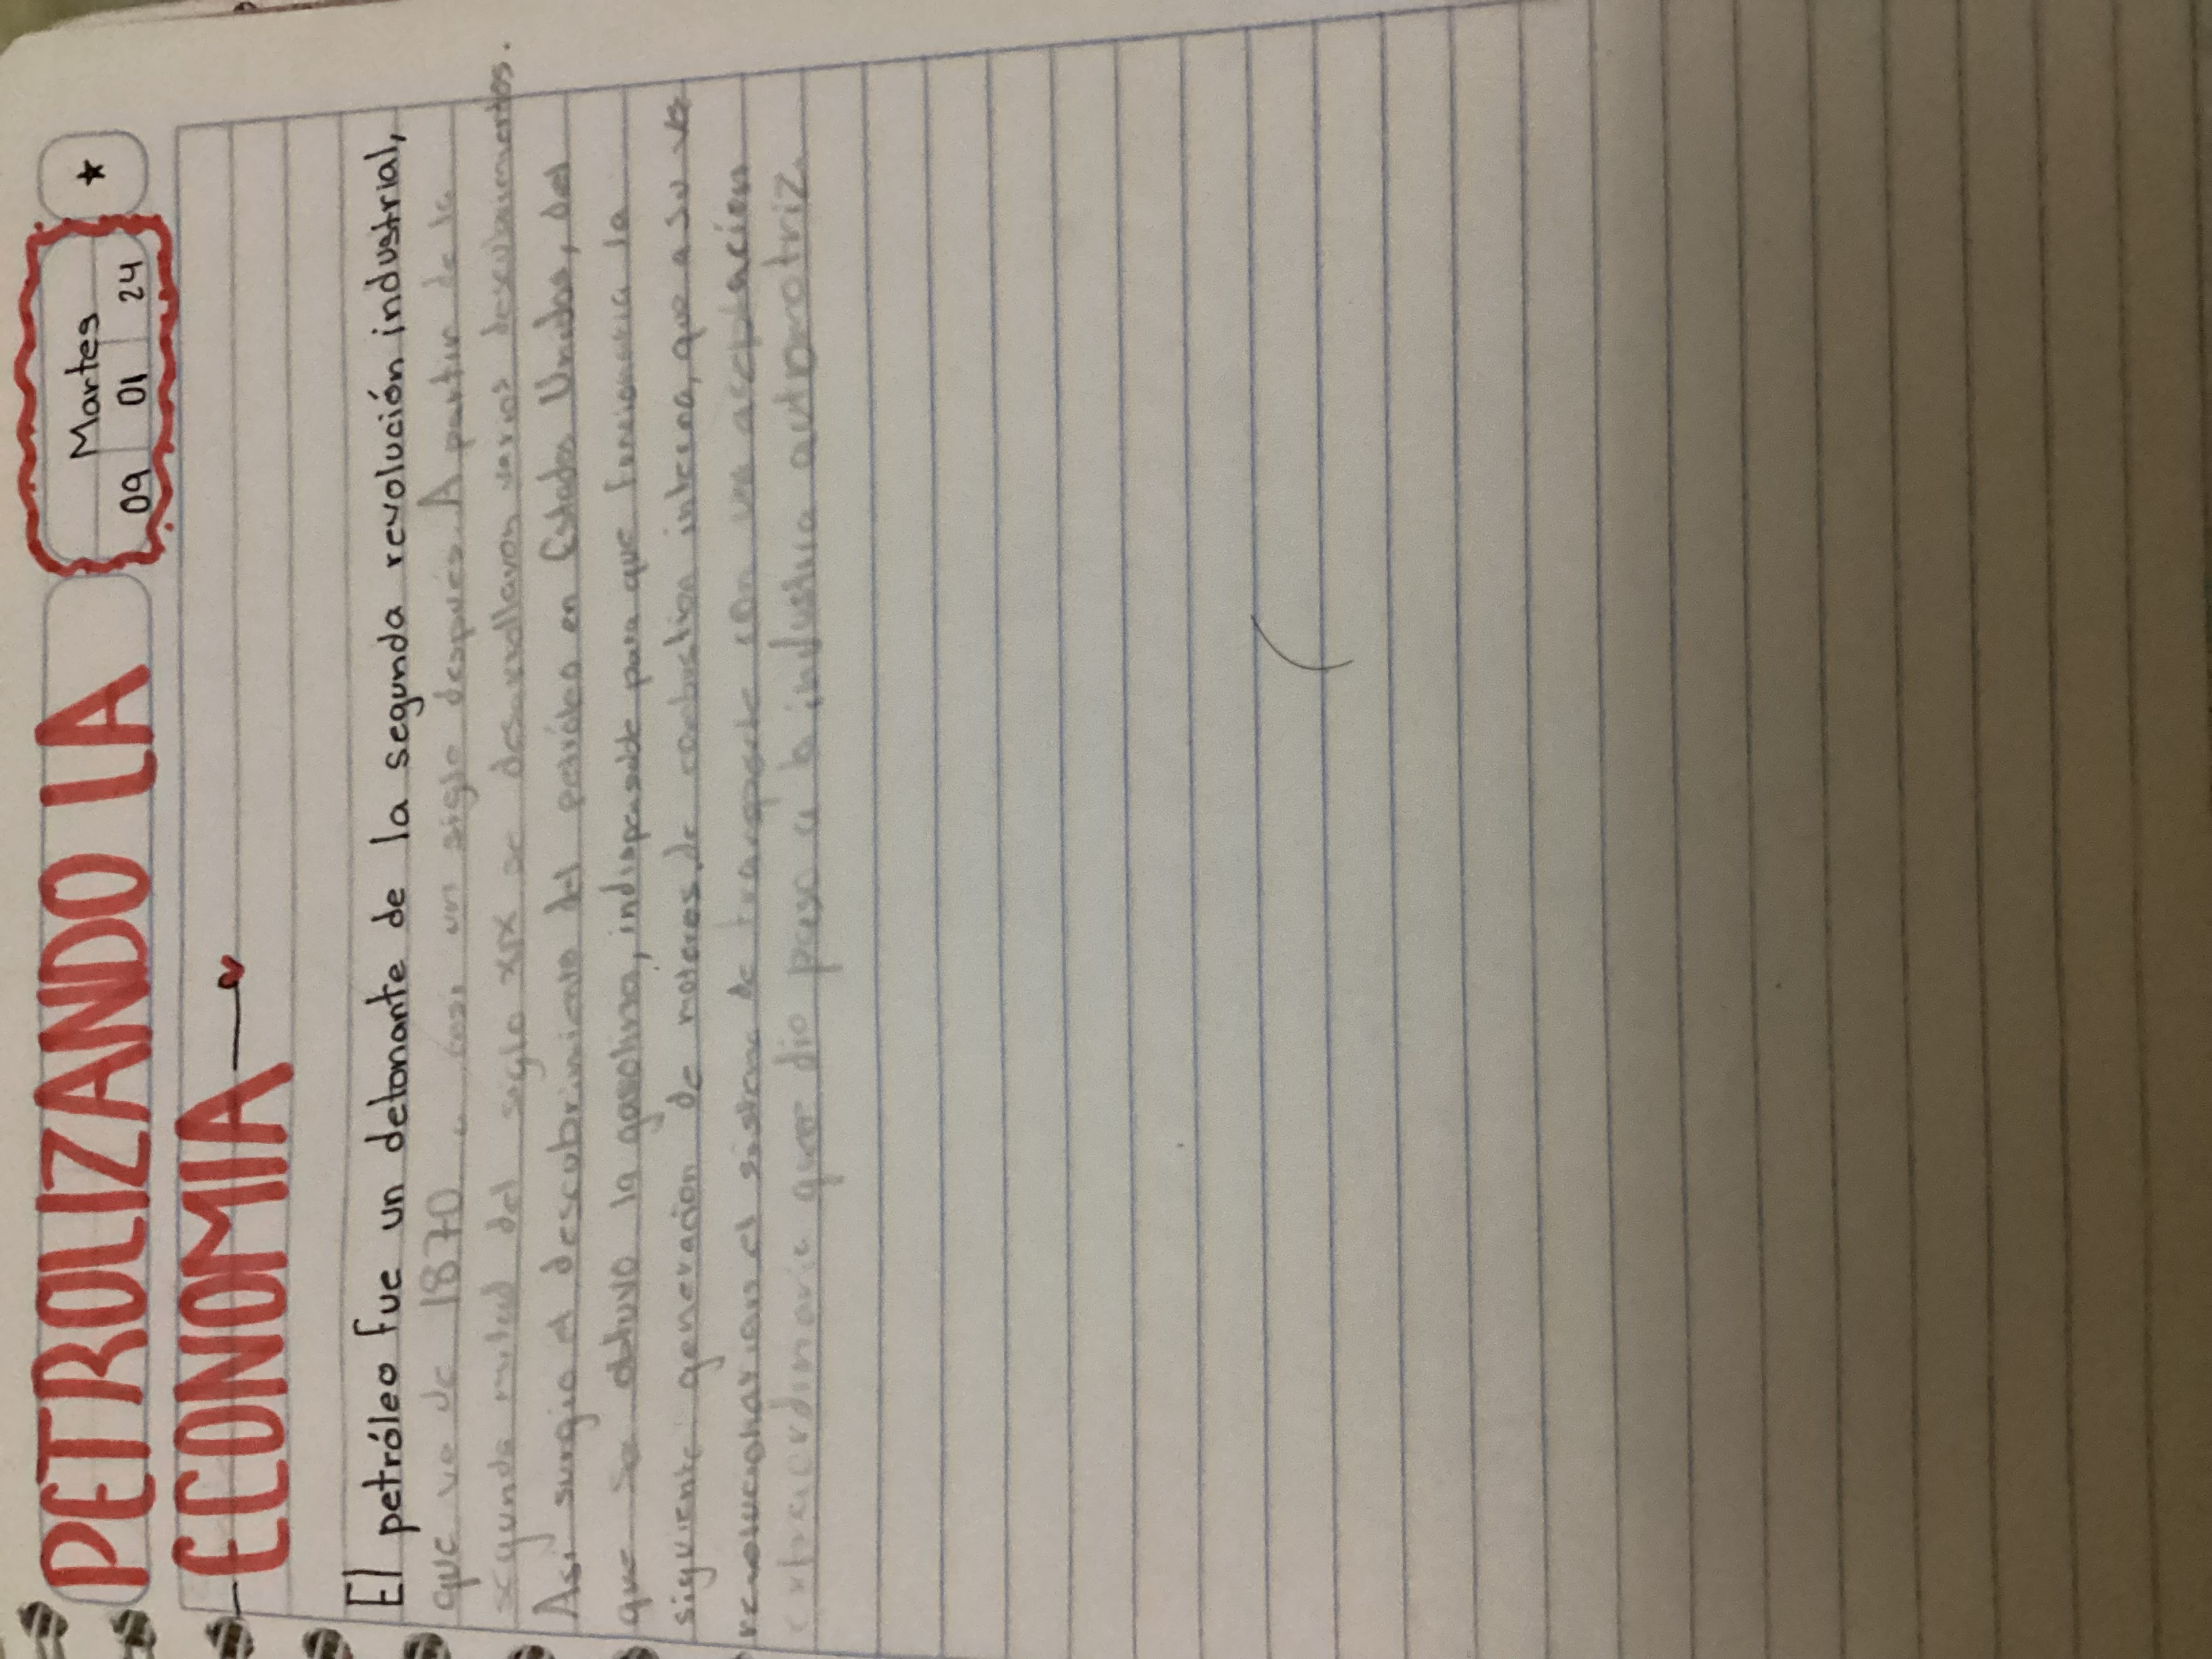 PETROLIZANDO LA
Martes
09 01 24
ECONOMIA
El petróleo fue un detonante de la segunda revolución industrial,
que va de 1870 a casi un siglo después. A partir de la
segunda mitad del siglo XIX se desarrollaron varios descubrimientos.
Asi surgio el descubrimiento del petróleo en Estados Unidos, del
que se obtuvo la gasolina, indispensable para que funcionaria la
siguiente generación de motores, de combustion interna, que a su vez
revolucionarian el sistema de transporte con una aceptación
extraordinaria que dio paso a la industria automotriz.